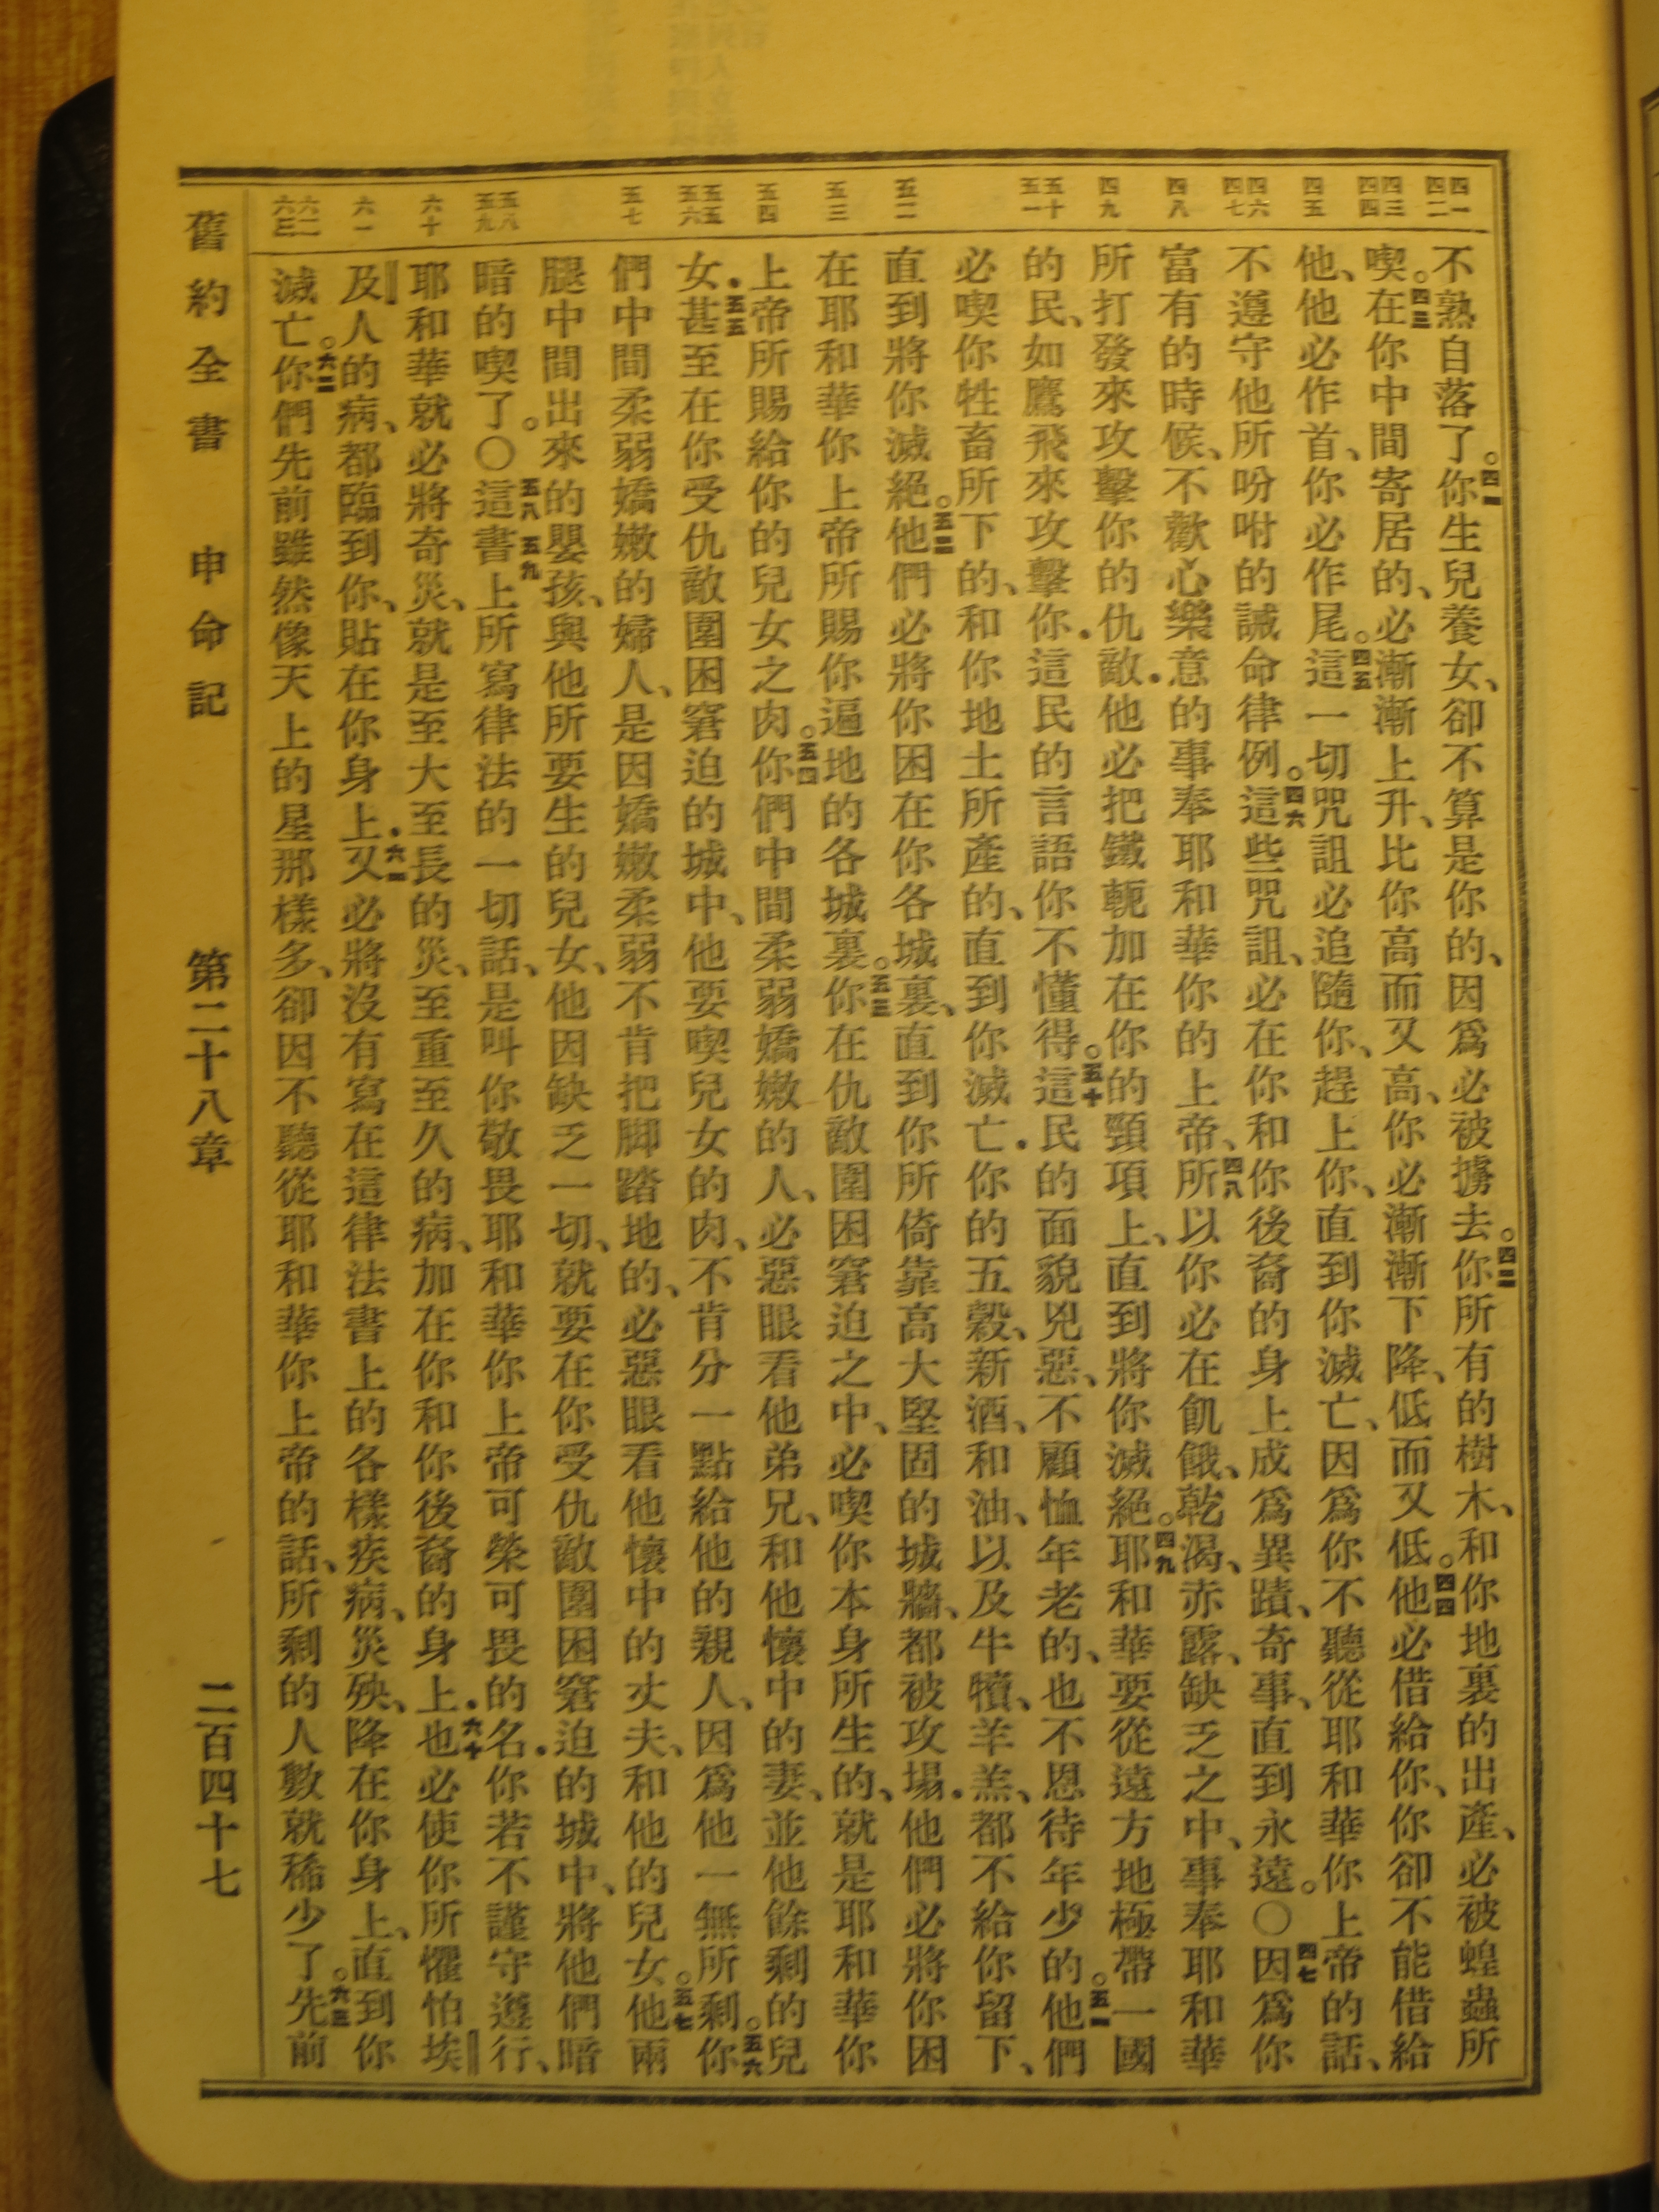 四一 四二
四三 四四
四五
四六 四七
四八
四九
五十 五一
五二
五三
五四
五五 五六
五七
五八 五九
六十
六一
六二 六三
不熟自落了。四一你生兒養女、卻不算是你的、因爲必被擄去。四二你所有的樹木、和你地裏的出產、必被蝗蟲所
喫。四三在你中間寄居的、必漸漸上升、比你高而又高、你必漸漸下降、低而又低。四四他必借給你、你卻不能借給
他、他必作首、你必作尾。四五這一切咒詛必追隨你、趕上你、直到你滅亡、因爲你不聽從耶和華你上帝的話、
不遵守他所吩咐的誡命律例。四六這些咒詛、必在你和你後裔的身上成爲異蹟、奇事、直到永遠。〇四七因爲你
富有的時候、不歡心樂意的事奉耶和華你的上帝、四八所以你必在飢餓、乾渴、赤露、缺乏之中、事奉耶和華
所打發來攻擊你的仇敵．他必把鐵軛加在你的頸項上、直到將你滅絕。四九耶和華要從遠方地極帶一國
的民、如鷹飛來攻擊你．這民的言語你不懂得。五十這民的面貌兇惡、不顧恤年老的、也不恩待年少的。五一他們
必喫你牲畜所下的、和你地土所產的、直到你滅亡．你的五穀、新酒、和油、以及牛犢、羊羔、都不給你留下、
直到將你滅絕。五二他們必將你困在你各城裏、直到你所倚靠高大堅固的城牆、都被攻塌．他們必將你困
在耶和華你上帝所賜你遍地的各城裏。五三你在仇敵圍困窘迫之中、必喫你本身所生的、就是耶和華你
上帝所賜給你的兒女之肉。五四你們中間柔弱嬌嫩的人、必惡眼看他弟兄、和他懷中的妻、並他餘剩的兒
女．五五甚至在你受仇敵圍困窘迫的城中、他要喫兒女的肉、不肯分一點給他的親人、因爲他一無所剩。五六你
們中間柔弱嬌嫩的婦人、是因嬌嫩柔弱不肯把脚踏地的、必惡眼看他懷中的丈夫、和他的兒女。五七他兩
腿中間出來的嬰孩、與他所要生的兒女、他因缺乏一切、就要在你受仇敵圍困窘迫的城中、將他們暗
暗的喫了。〇五八這書五九上所寫律法的一切話、是叫你敬畏耶和華你上帝可榮可畏的名．你若不謹守遵行、
耶和華就必將奇災、就是至大至長的災、至重至久的病、加在你和你後裔的身上．六十也必使你所懼怕埃
及人的病、都臨到你、貼在你身上．六一又必將沒有寫在這律法書上的各樣疾病、災殃、降在你身上、直到你
滅亡。六二你們先前雖然像天上的星那樣多、卻因不聽從耶和華你上帝的話、所剩的人數就稀少了。六三先前
舊約全書 申命記 第二十八章 二百四十七